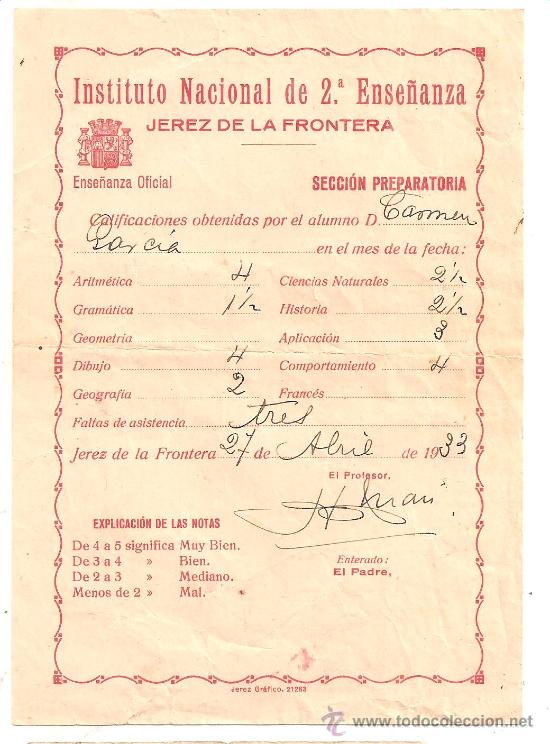 Instituto Nacional de 2.ª Enseñanza
JEREZ DE LA FRONTERA
Enseñanza Oficial SECCIÓN PREPARATORIA
Calificaciones obtenidas por el alumno D. Carmen
García en el mes de la fecha:
Aritmética 4 Ciencias Naturales 2 1/2
Gramática 1 1/2 Historia 2 1/2
Geometría Aplicación 3
Dibujo 4 Comportamiento 4
Geografía 2 Francés
Faltas de asistencia tres
Jerez de la Frontera 27 de Abril de 1933
El Profesor,
EXPLICACIÓN DE LAS NOTAS
De 4 a 5 significa Muy Bien.
De 3 a 4 » Bien.
De 2 a 3 » Mediano.
Menos de 2 » Mal.
Enterado:
El Padre,
Jerez Gráfico. 21263
www.todocoleccion.net